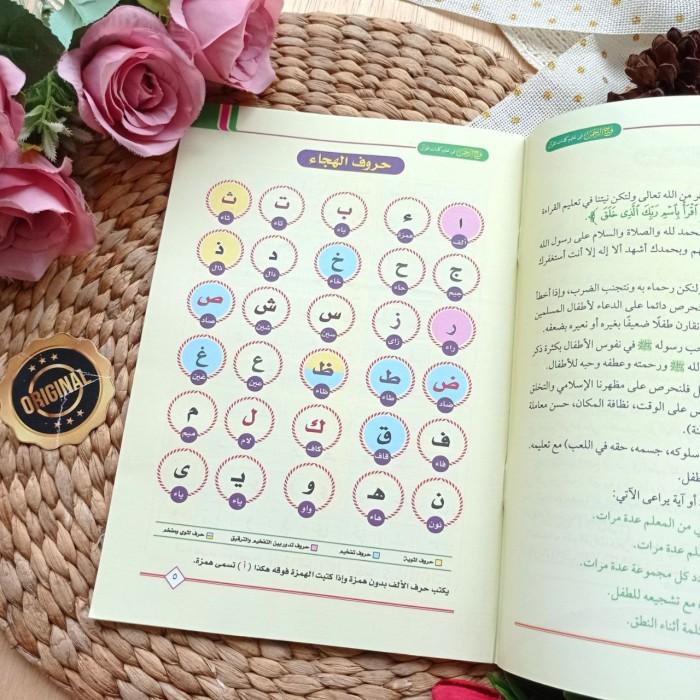 حروف الهجاء
ا ء ب ت ث
ألف همزة باء تاء ثاء
ج ح خ د ذ
جيم حاء خاء دال ذال
ر ز س ش ص
راء زاى سين شين صاد
ض ط ظ ع غ
ضاد طاء ظاء عين غين
ف ق ك ل م
فاء قاف كاف لام ميم
ن هـ و يـ ى
نون هاء واو ياء ياء
حرف لثوية حرف تفخيم حروف تدور بين التفخيم والترقيق حرف لثوى ومفخم
يكتب حرف الألف بدون همزة وإذا كتبت الهمزة فوقه هكذا ( أ ) تسمى همزة.
٥
ORIGINAL
من الله تعالى ولتكن نيتنا في تعليم القراءة
اقْرَأْ بِاسْمِ رَبِّكَ الَّذِى خَلَقَ
لله والصلاة والسلام على رسول الله
وبحمدك أشهد ألا إله إلا أنت أستغفرك
لتكن رحماء به ونتجنب الضرب، وإذا أخطأ
نحرص دائما على الدعاء لأطفال المسلمين
طفلًا ضعيفًا بغيره أو نعيره بضعفه.
رسوله ﷺ في نفوس الأطفال بكثرة ذكر
ﷺ ورحمته وعطفه وحبه للأطفال.
فلنحرص على مظهرنا الإسلامي والتخلق
على الوقت، نظافة المكان، حسن معاملة
سلوكه، جسمه، حقه في اللعب) مع تعليمه.
أو آية يراعى الآتي:
من المعلم عدة مرات.
عدة مرات.
كل مجموعة عدة مرات.
مع تشجيعه للطفل.
أثناء النطق.